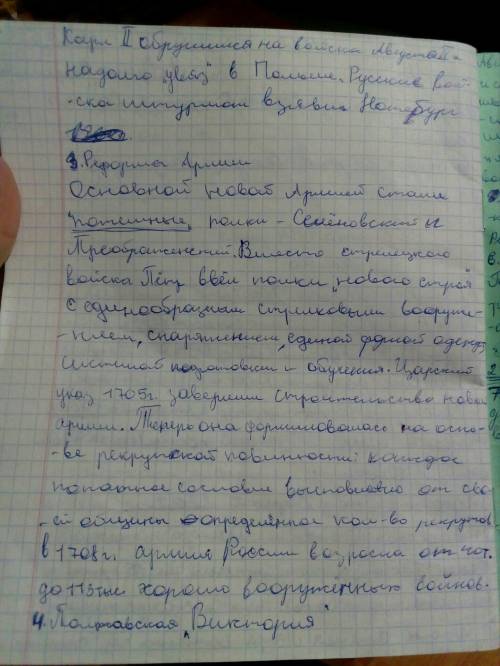 Карл II обрушился на войска Августа II -
надолго "увяз" в Польше. Русские вой-
-ска штурмом взявши Нотебург
3. Реформа Армии
Основной новой Армией стали
"потешные" полки - Семёновский и
Преображенский. Вместо стрелецкого
войска Пётр ввёл полки "нового строя"
с единообразным стрелковым вооруже-
-нием, снаряжением, единой формой одежды,
системой подготовки и обучения. Царский
указ 1705г. завершил строительство новой
армии. Теперь она формировалась на осно-
-ве рекрутской повинности: каждое
податное сословие выставляло от сво-
-ей общины определённое кол-во рекрутов
в 1708г. армия России возросла от
до 113 тыс. хорошо вооруженных воинов.
4. Полтавская "Виктория"